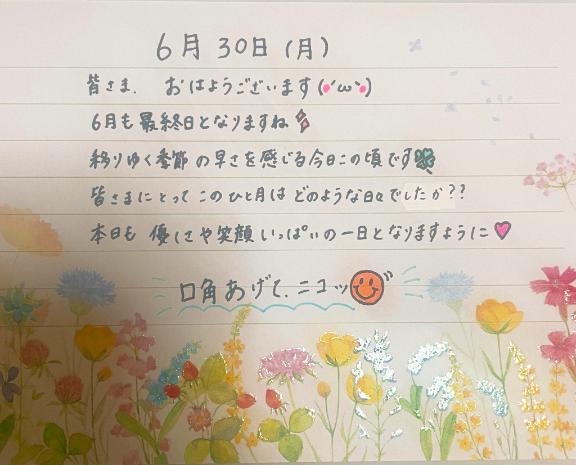 6月30日(月)
皆さま、おはようございます(´ω`)
6月も最終日となりますね
移りゆく季節の早さを感じる今日この頃です
皆さまにとってこのひと月はどのような日々でしたか??
本日も優しさや笑顔いっぱいの一日となりますように♥
口角あげて、ニコッ